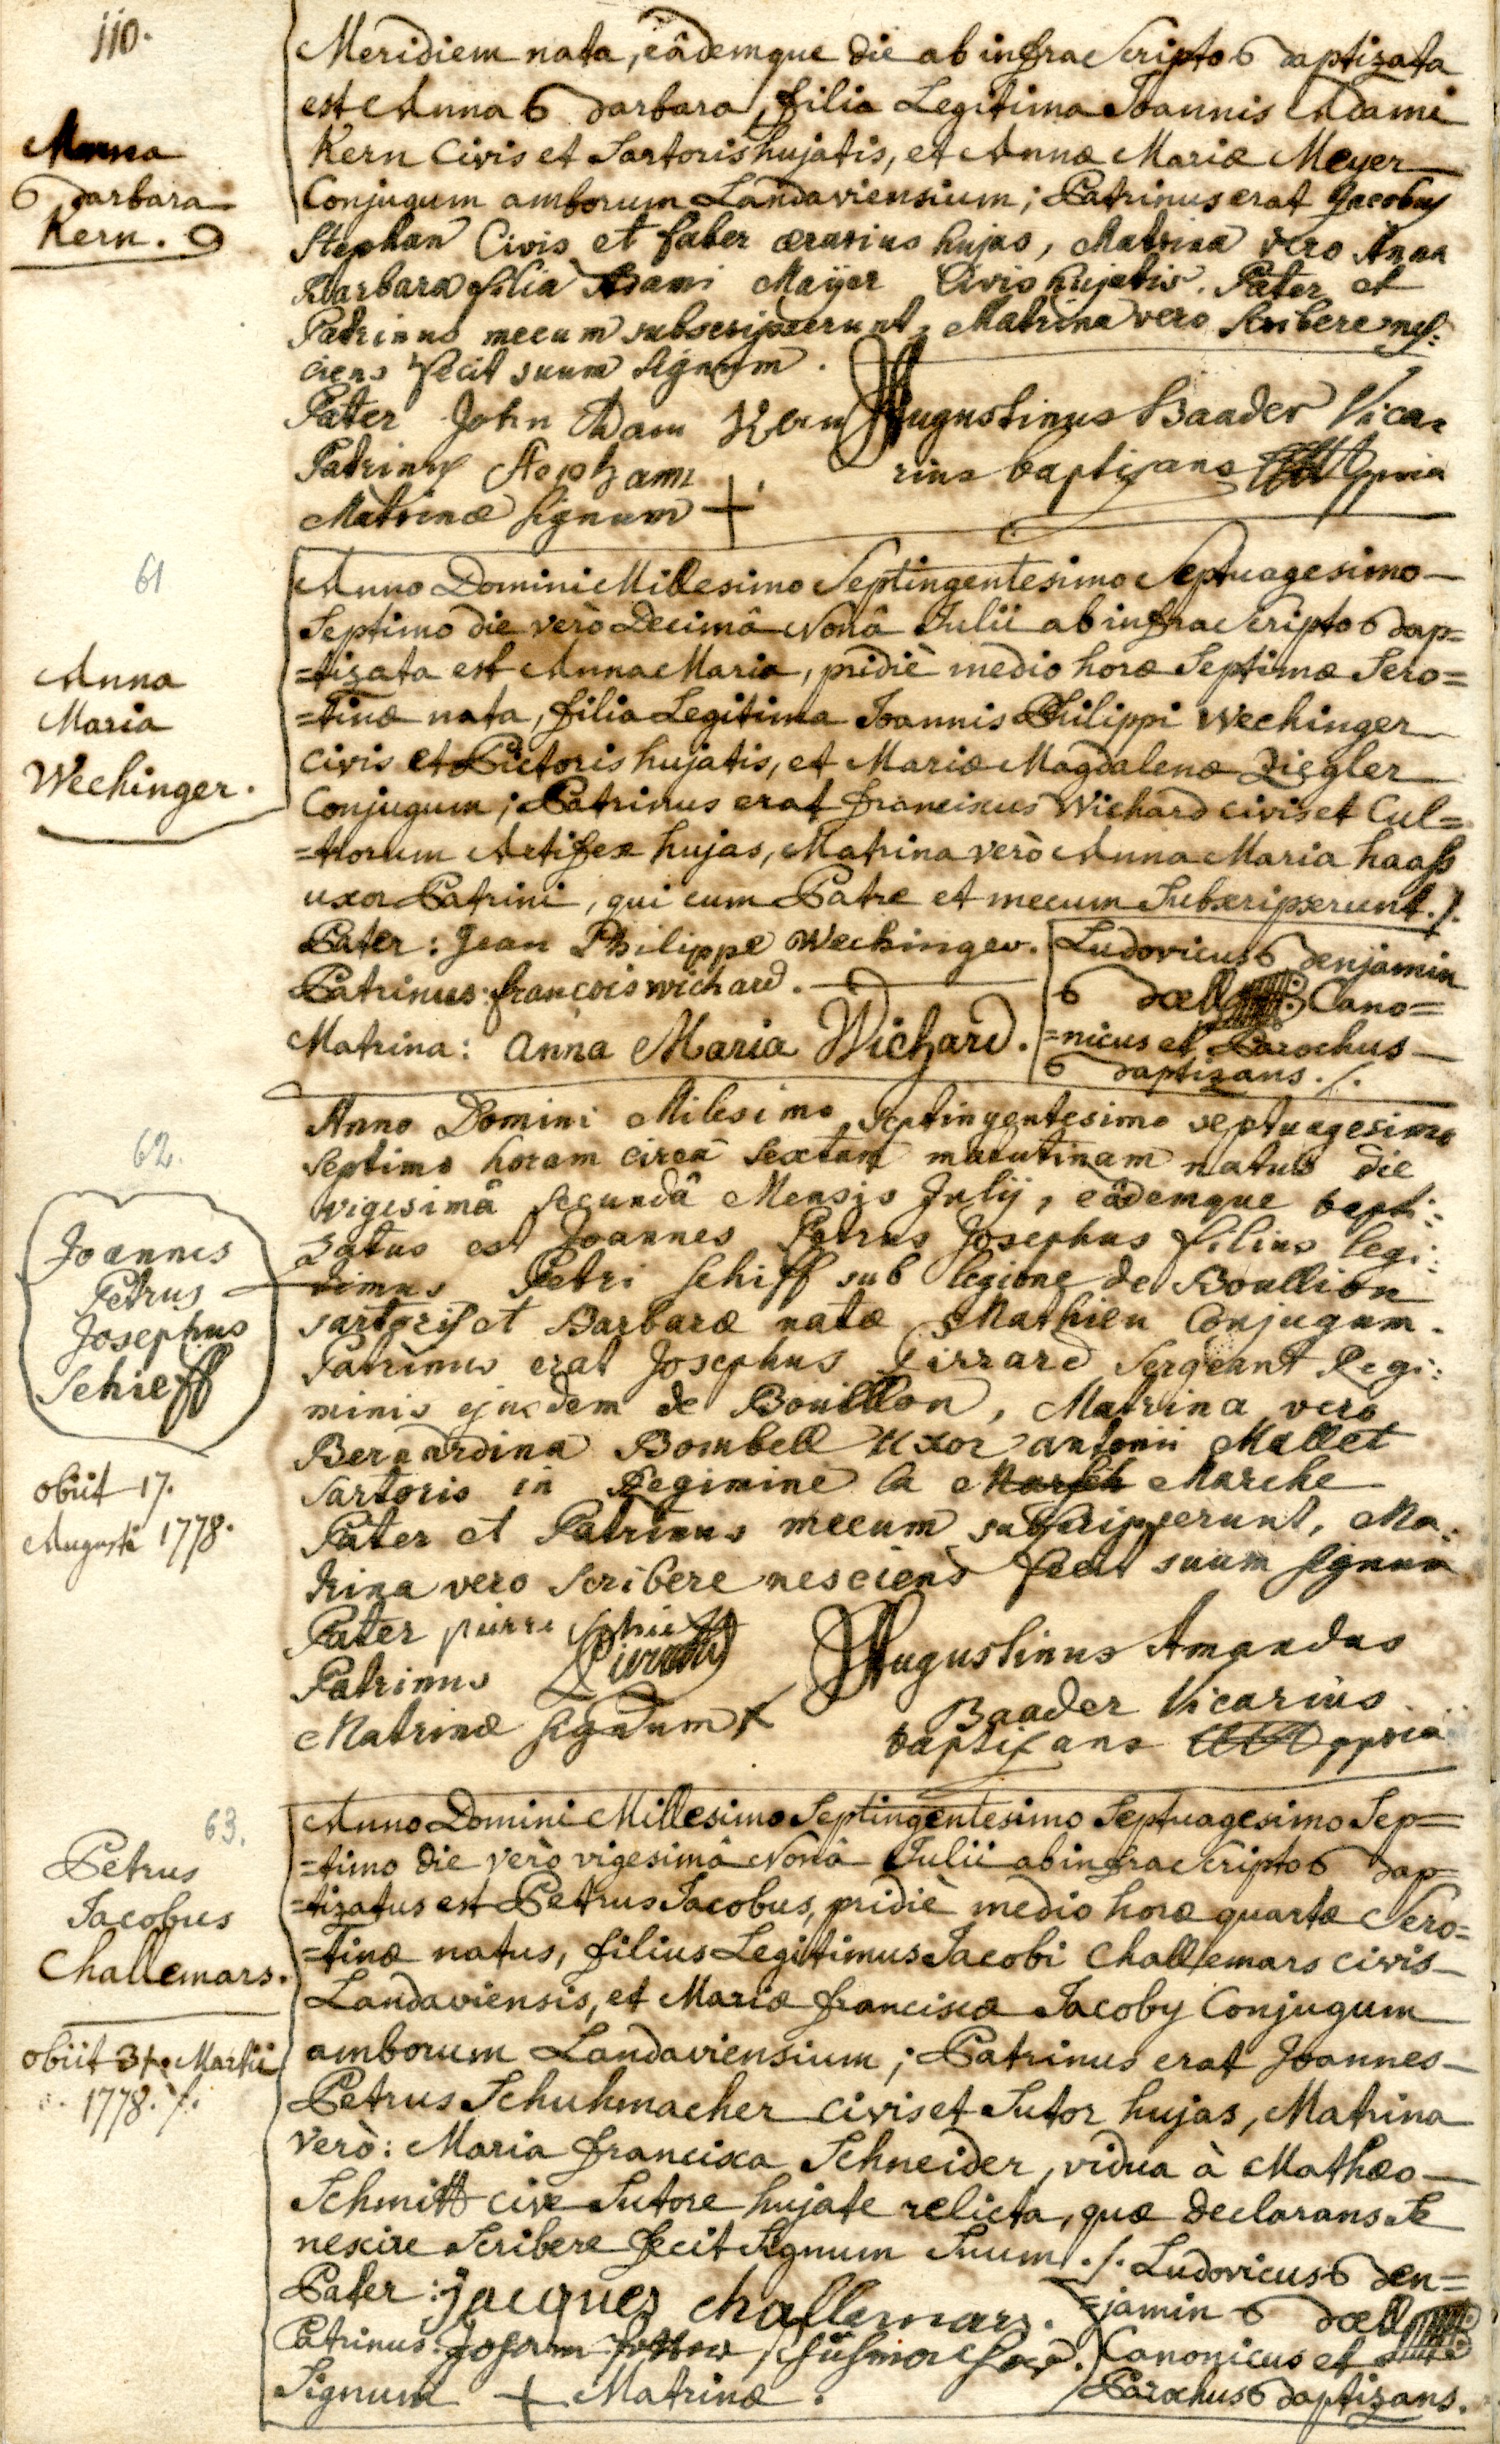 110.
Meridiem nata, eâdemque die ab infra Scripto Baptizata
est Anna Barbara, filia Legitima Joannis Adami
Anna
Barbara
Kern.
Kern Civis et Sartoris hujatis, et Annæ Mariæ Meyer
Conjugum amborum Landaviensium; Patrinus erat Jacobus
Stephan Civis et faber ærarius hujas, Matrina vero Anna
Barbara filia Adami Mayer Civis hujatis. Pater et
Patrinus mecum subscripserunt, Matrina vero Scribere nes:
ciens fecit suum signum.
Pater John Adam Kern Augustinus Baader Vica-
Patrinus Stephann rius baptizans ppria
Matrinæ signum +
61
Anno Domini Millesimo Septingentesimo Septuagesimo
Septimo die verò Decimâ Nonâ Julii ab infra Scripto Bap=
=tizata est Anna Maria, pridiè medio horæ Septimæ Sero=
=tinæ nata, filia Legitima Joannis Philippi Wechinger
Anna
Maria
Wechinger.
Civis et Pictoris hujatis, et Mariæ Magdalenæ Ziegler
Conjugum; Patrinus erat franciscus Wichard civis et Cul=
=trorum Artifex hujas, Matrina verò Anna Maria haaß
uxor Patrini, qui cum Patre et mecum Subscripserunt./.
Pater: Jean Philippe Wechinger. Ludovicus Benjamin
Patrinus: françois wichard. Bœll Cano=
Matrina: anna Maria Wichard. =nicus et Parochus
Baptizans./.
62.
Anno Domini Milesimo septingentesimo septuagesimo
septimo horam circà sextam matutinam natus die
vigesimâ secundâ Mensis Julij, eâdemque bapti:
zatus est Joannes Petrus Josephus filius legi:
timus Petri Schiff sub legione de Boullion
Joannes
Petrus
Josephus
Schieff
sartoris et Barbaræ natæ Mathieu Conjugum.
Patrinus erat Josephus Pierrard Sergeant Regi:
minis ejusdem de Bouillon, Matrina vero
Bernardina Bombell uxor antonii Mallet
sartoris in Regimine la Marche
obiit 17.
Augusti 1778.
Pater et Patrinus mecum subscripserunt, Ma:
trina vero scribere nesciens fecit suum signum
Pater pierre schieff Augustinus Amandus
Patrinus Pierrard Baader Vicarius
Matrinæ signum + baptizans ppria
63.
Anno Domini Millesimo Septingentesimo Septuagesimo Sep=
=timo die verò vigesimâ Nonâ Julii ab infra Scripto Bap=
=tizatus est Petrus Jacobus, pridiè medio horæ quartæ Sero=
=tinæ natus, filius Legitimus Jacobi Challemars civis
Petrus
Jacobus
Challemars.
Landaviensis, et Mariæ franciscæ Jacoby Conjugum
amborum Landaviensium; Patrinus erat Joannes
obiit 31. Martii
1778./.
Petrus Schuhmacher civis et Sutor hujas, Matrina
verò: Maria francisca Schneider, vidua à Mathæo
Schmitt cive Sutore hujate relicta, quæ declarans Se
nescire Scribere fecit Signum Suum./. Ludovicus Ben=
Pater: Jacques challemars. =jamin Bœll
Patrinus: Johann petter schuhmacher. Canonicus et
Signum + Matrinæ. Parochus Baptizans.